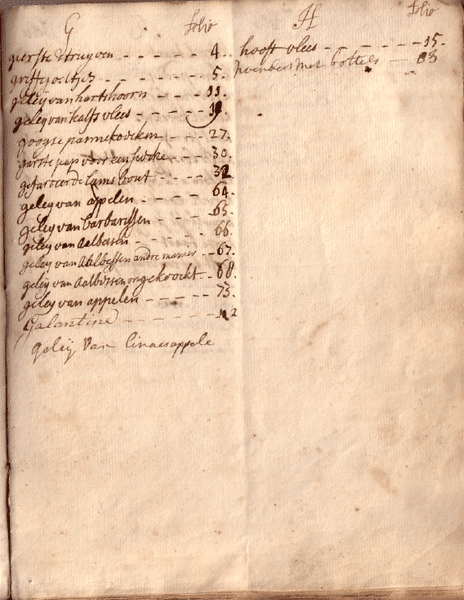 G folio
gerste &truyven - - - 4.
griffe poeltjes - - 5.
geleij van hartshoorn - - - 11.
geleij van kalfs vlees - - -
googse pannekoeken - - - 27.
garste pap voor een siecke - - - 30.
gefarceerde lams bout - - - 32
geleij van appelen - - - - 64.
geleij van barbarissen - - - 65.
geleij van aelbessen - - - - 66.
geleij van Aelbessen andre manier - - 67.
geleij van Aelbessen ongekoockt - 68.
geleij van appelen - - - - - 73.
Galantine
geleij van Cinaesappele
H folio
hooft vlees - - - - - - - 15.
met